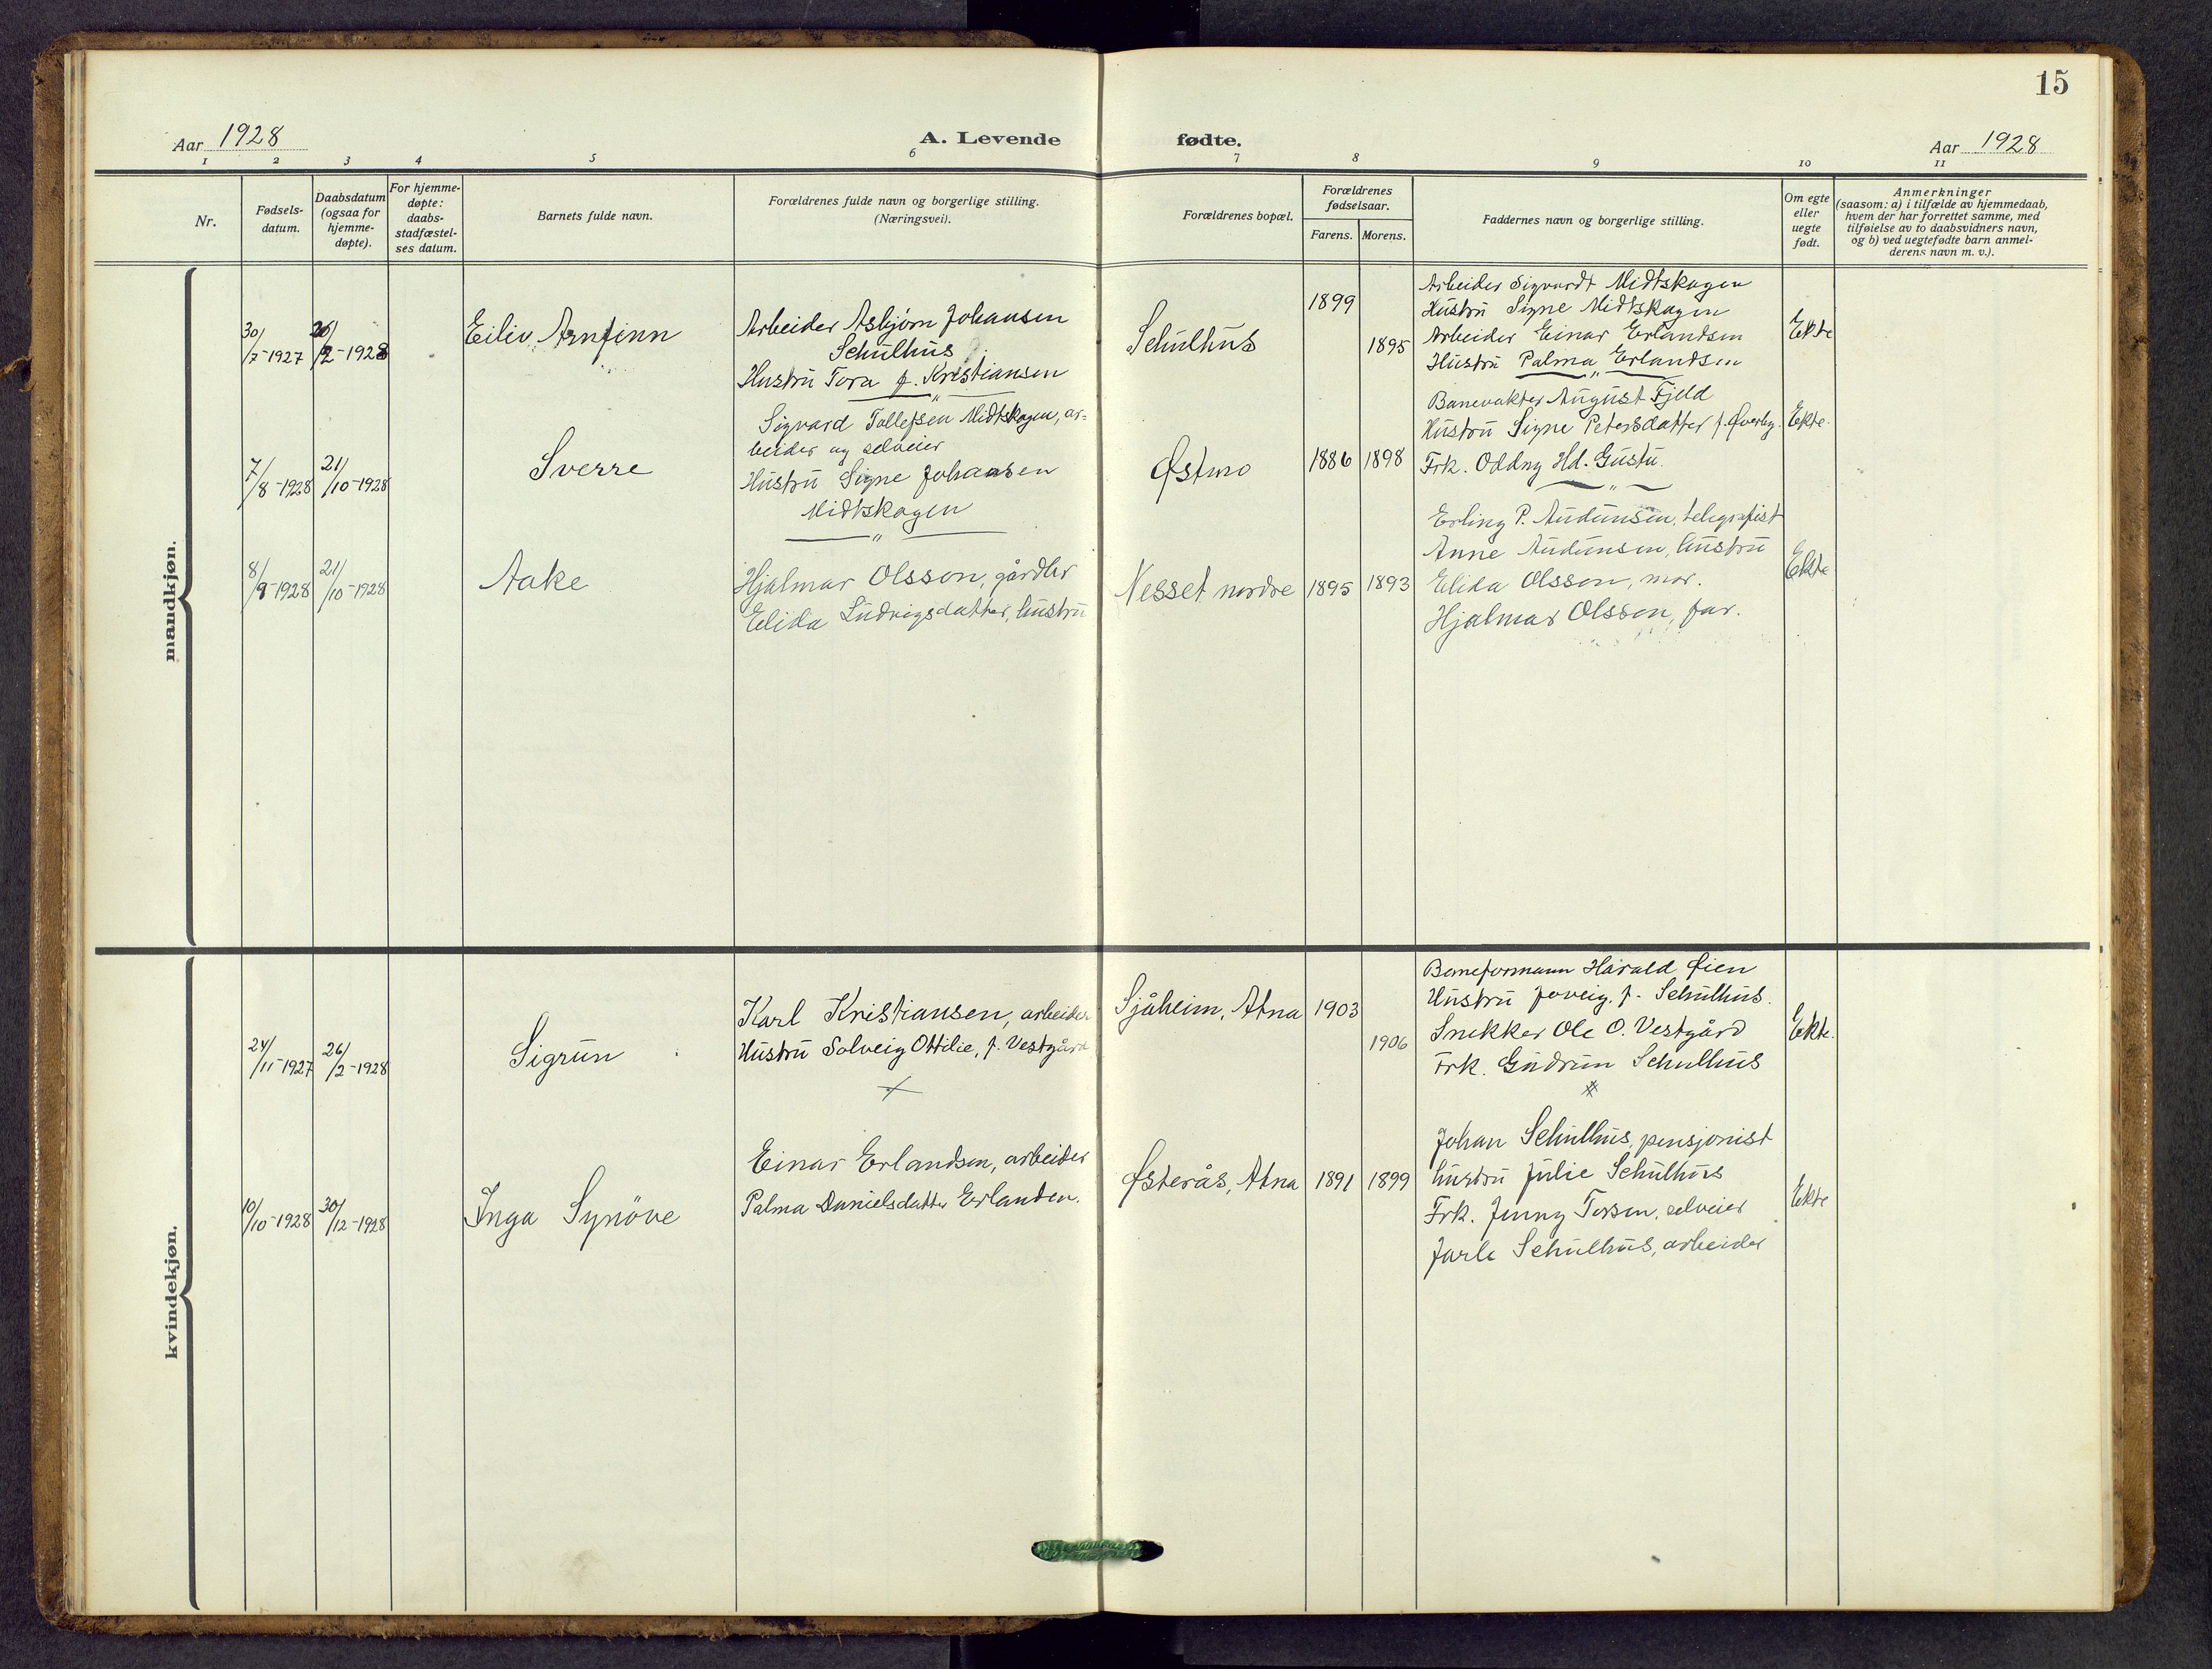 15
Aar 1928
A. Levende fødte.
Aar 1928
1 2 3 4 5 6 7 8 9 10 11
Nr.
Fødsels-
datum.
Daabsdatum
(ogsaa for
hjemme-
døpte).
For hjemme-
døpte:
daabs-
stadfæstel-
ses datum.
Barnets fulde navn.
Forældrenes fulde navn og borgerlige stilling.
(Næringsvei).
Forældrenes bopæl.
Forældrenes
fødselsaar.
Farens. Morens.
Faddernes navn og borgerlige stilling.
Om egte
eller
uegte
født.
Anmerkninger
(saasom: a) i tilfælde av hjemmedaab,
hvem der har forrettet samme, med
tilføielse av to daabsvidners navn,
og b) ved uegtefødte barn anmel-
derens navn m. v.).
mandkjøn.
30/
/7-1927
26/
/2-1928
Eiliv Arnfinn
Arbeider Asbjörn Johansen
Schulhus
Hustru Tora f. Kristiansen
Schulhus
1899
1895
Arbeider Sigvardt Midtskogen
Hustru Signe Midtskogen
Arbeider Einar Erlandsen
Hustru Palma Erlandsen
Ekte
7/
/8-1928
21/
/10-1928
Sverre
Sigvard Tollefsen Midtskogen, ar-
beider og selveier
Hustru Signe Johansen
Midtskogen
Østmo
1886
1898
Banevokter August Fjeld
Hustru Signe Petersdatter f. Øverby.
Frk. Oddny Hd. Gustu.
Ekte.
8/
/9-1928
21/
/10-1928
Aake
Hjalmar Olsson, gårdbr
Elida Ludvigsdatter, hustru
Nesset nordre
1895
1893
Erling P. Audunsen, telegrafist
Anne Audunsen, hustru
Elida Olsson, mor.
Hjalmar Olsson, far.
Ekte
kvindekjøn.
24/
/11-1927
26/
/2-1928
Sigrun
Karl Kristiansen, arbeider
Hustru Solveig Ottilie, f. Vestgård
Sjåheim, Atna
1903
1906
Baneformann Harald Øien
Hustru f. Schulhus.
Snekker Ole O. Vestgård
Frk. Gudrun Schulhus
Ekte.
10/
/10-1928
30/
/12-1928
Inga Synöve
Einar Erlandsen, arbeider
Palma Danielsdatter Erlanden.
Østerås, Atna
1891
1899
Johan Schulhus, pensjonist
hustru Julie Schulhus
Frk. Jenny Torsen, selveier
Jarle Schulhus, arbeider
Ekte